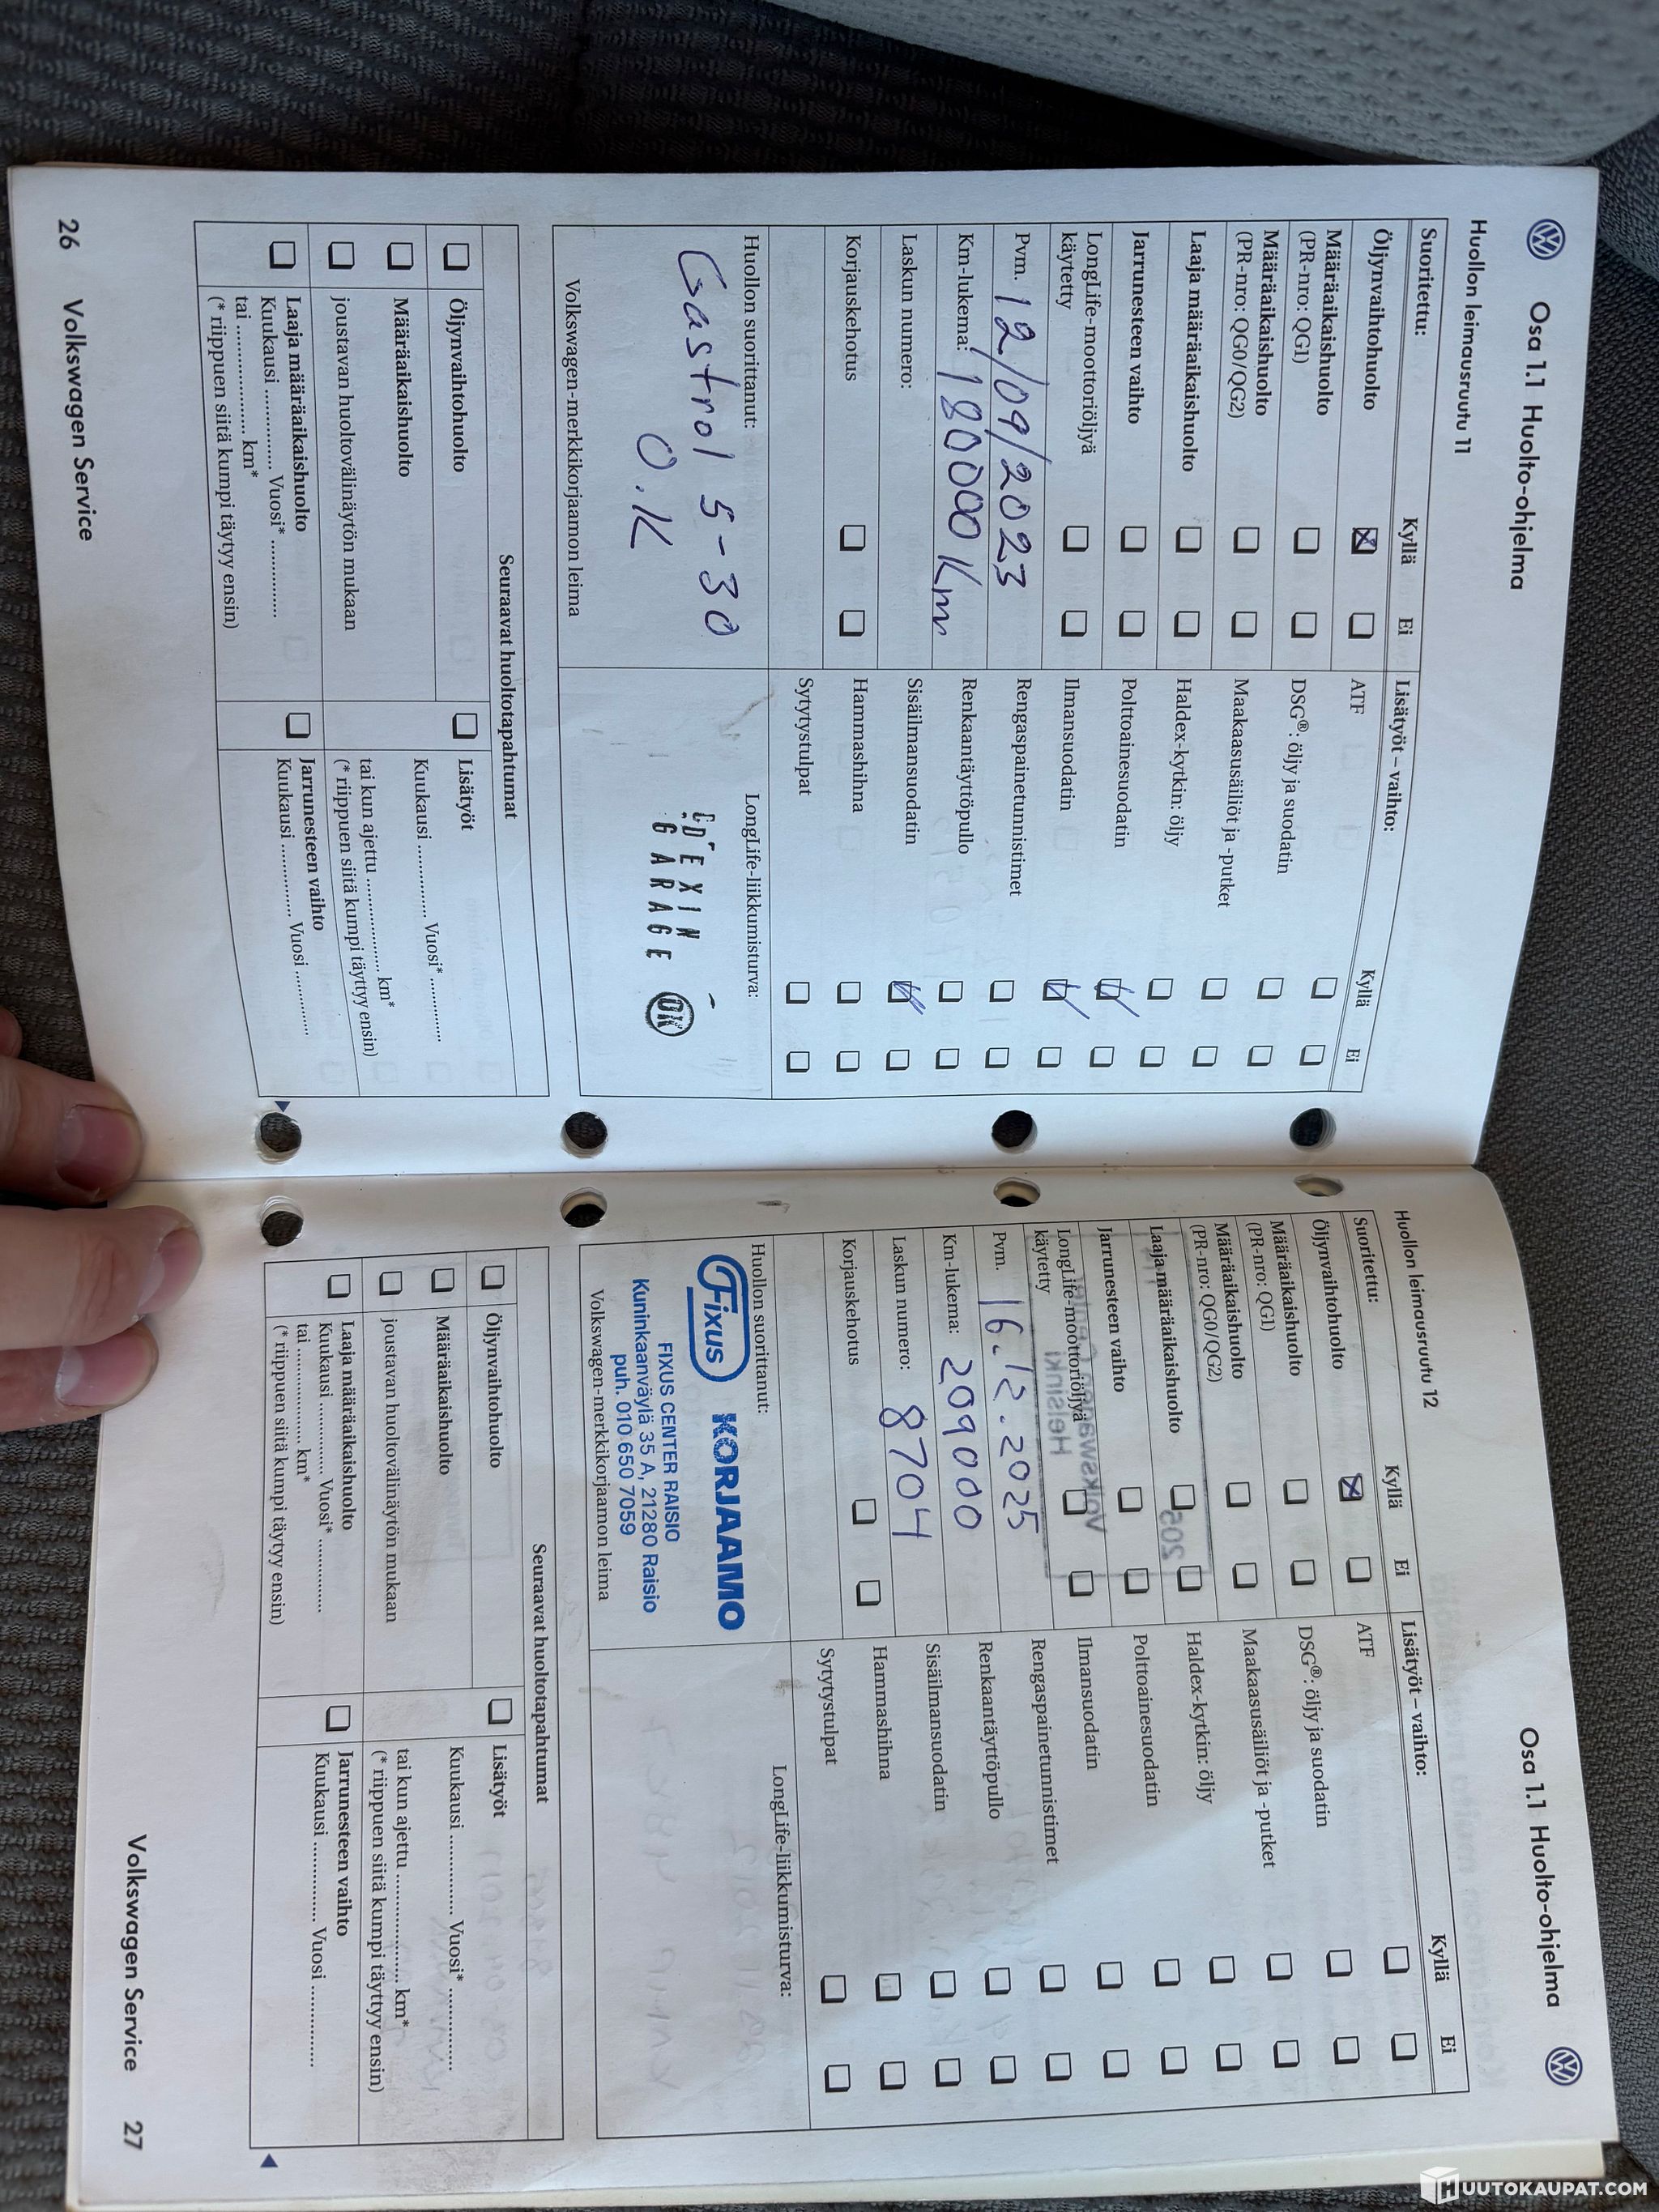 Osa 1.1 Huolto-ohjelma
Huollon leimausruutu 11
Suoritettu: Kyllä Ei
Öljynvaihtohuolto
Määräaikaishuolto
(PR-nro: QG1)
Määräaikaishuolto
(PR-nro: QG0/QG2)
Laaja määräaikaishuolto
Jarrunesteen vaihto
LongLife-moottoriöljyä
käytetty
Pvm. 12/09/2023
Km-lukema: 180000 Km
Laskun numero:
Korjauskehotus
Lisätyöt – vaihto: Kyllä Ei
ATF
DSG®: öljy ja suodatin
Maakaasusäiliöt ja -putket
Haldex-kytkin: öljy
Polttoainesuodatin
Ilmansuodatin
Rengaspainetunnistimet
Renkaantäyttöpullo
Sisäilmansuodatin
Hammashihna
Sytytystulpat
Huollon suorittanut:
Castrol 5-30
O.K
Volkswagen-merkkikorjaamon leima
LongLife-liikkumisturva:
GARAGE
OK
Seuraavat huoltotapahtumat
Öljynvaihtohuolto
Määräaikaishuolto
joustavan huoltovälinäytön mukaan
Laaja määräaikaishuolto
Kuukausi .............. Vuosi* ..............
tai .................. km*
(* riippuen siitä kumpi täytyy ensin)
Lisätyöt
Kuukausi .............. Vuosi* ..............
tai kun ajettu .................. km*
(* riippuen siitä kumpi täyttyy ensin)
Jarrunesteen vaihto
Kuukausi .............. Vuosi ..............
26 Volkswagen Service
Osa 1.1 Huolto-ohjelma
Huollon leimausruutu 12
Suoritettu: Kyllä Ei
Öljynvaihtohuolto
Määräaikaishuolto
(PR-nro: QG1)
Määräaikaishuolto
(PR-nro: QG0/QG2)
Laaja määräaikaishuolto
Jarrunesteen vaihto
LongLife-moottoriöljyä
käytetty
Pvm. 16.12.2025
Km-lukema: 209000
Laskun numero: 8704
Korjauskehotus
Lisätyöt – vaihto: Kyllä Ei
ATF
DSG®: öljy ja suodatin
Maakaasusäiliöt ja -putket
Haldex-kytkin: öljy
Polttoainesuodatin
Ilmansuodatin
Rengaspainetunnistimet
Renkaantäyttöpullo
Sisäilmansuodatin
Hammashihna
Sytytystulpat
Huollon suorittanut:
Fixus KORJAAMO
FIXUS CENTER RAISIO
Kuninkaanväylä 35 A, 21280 Raisio
puh. 010 650 7059
Volkswagen-merkkikorjaamon leima
LongLife-liikkumisturva:
Seuraavat huoltotapahtumat
Öljynvaihtohuolto
Määräaikaishuolto
joustavan huoltovälinäytön mukaan
Laaja määräaikaishuolto
Kuukausi .............. Vuosi* ..............
tai .................. km*
(* riippuen siitä kumpi täytyy ensin)
Lisätyöt
Kuukausi .............. Vuosi* ..............
tai kun ajettu .................. km*
(* riippuen siitä kumpi täyttyy ensin)
Jarrunesteen vaihto
Kuukausi .............. Vuosi ..............
Volkswagen Service 27
HUUTOKAUPAT.COM